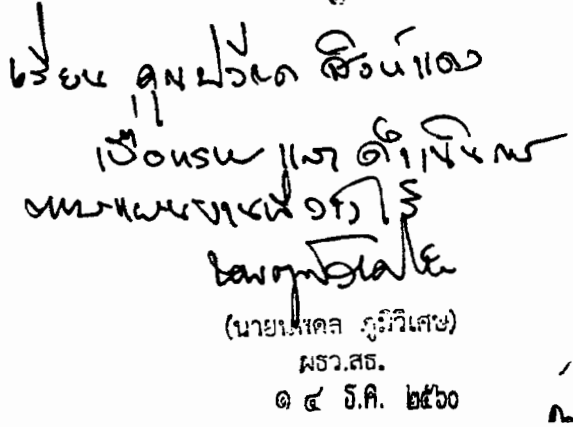 เรียน คุณปวีณา สิงห์แดง
เพื่อทราบ และ ดำเนินการ
ตามแผนงานที่วางไว้
(นายนพดล ภูมิวิเศษ)
ผธว.สธ.
๑ ๔ ธ.ค. ๒๕๖๐